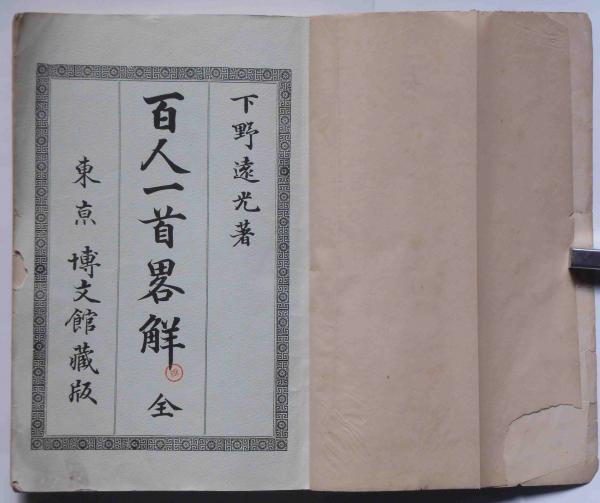 下野遠光著
百人一首畧解 全
東京 博文館藏版